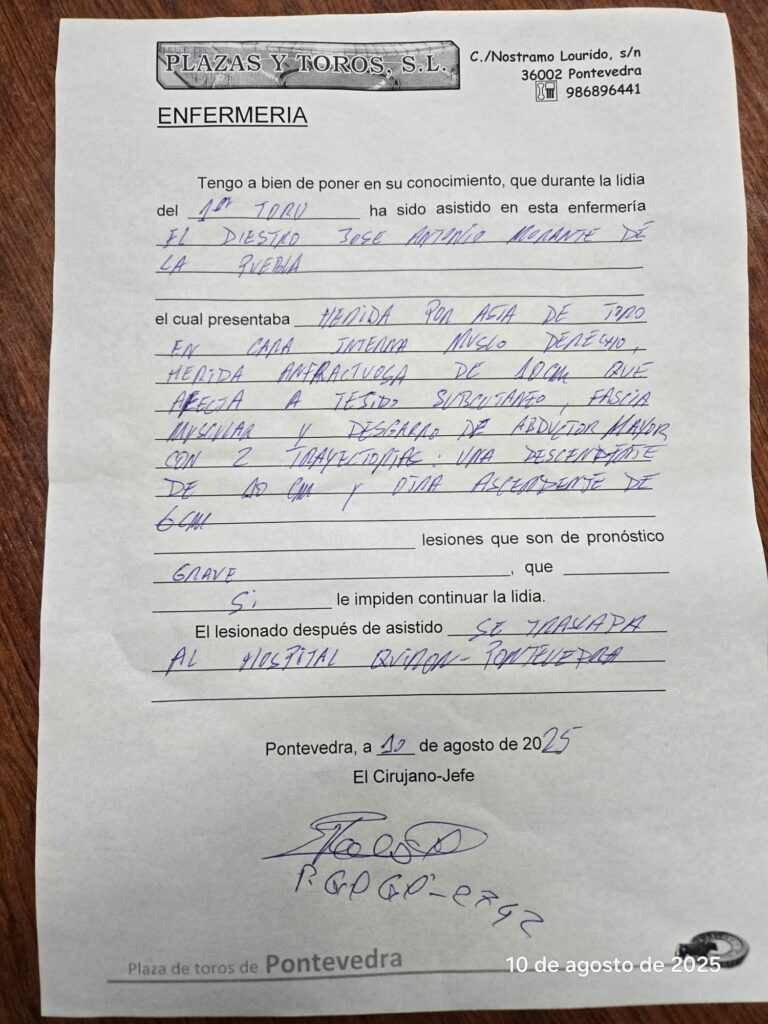 PLAZAS Y TOROS, S.L.
C./Nostramo Lourido, s/n
36002 Pontevedra
986896441
ENFERMERIA
Tengo a bien de poner en su conocimiento, que durante la lidia
del 1er TORO ha sido asistido en esta enfermería
EL DIESTRO JOSE ANTONIO MORANTE DE
LA PUEBLA
el cual presentaba HERIDA POR ASTA DE TORO
EN CARA INTERNA MUSLO DERECHO,
HERIDA ANFRACTUOSA DE 10CM QUE
AFECTA A TEJIDO SUBCUTANEO, FASCIA
MUSCULAR Y DESGARRO DE ABDUCTOR MAYOR
CON 2 TRAYECTORIAS: UNA DESCENDENTE
DE 10 CM Y OTRA ASCENDENTE DE
6CM
lesiones que son de pronóstico
GRAVE, que
Si le impiden continuar la lidia.
El lesionado después de asistido SE TRASLADA
AL HOSPITAL QUIRON-PONTEVEDRA
Pontevedra, a 10 de agosto de 2025
El Cirujano-Jefe
Plaza de toros de Pontevedra
10 de agosto de 2025